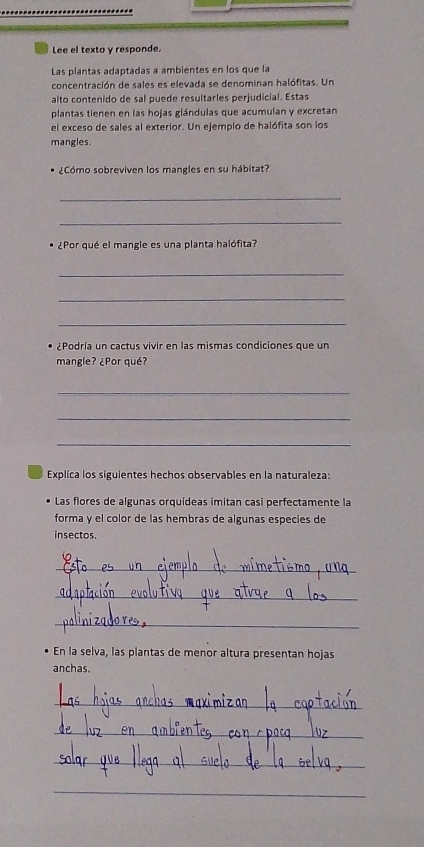 Lee el texto y responde.
Las plantas adaptadas a ambientes en los que la
concentración de sales es elevada se denominan halófitas. Un
alto contenido de sal puede resultarles perjudicial. Estas
plantas tienen en las hojas glándulas que acumulan y excretan
el exceso de sales al exterior. Un ejemplo de halófita son los
mangles.
• ¿Cómo sobreviven los mangles en su hábitat?
• ¿Por qué el mangle es una planta halófita?
• ¿Podría un cactus vivir en las mismas condiciones que un
mangle? ¿Por qué?
Explica los siguientes hechos observables en la naturaleza:
• Las flores de algunas orquídeas imitan casi perfectamente la
forma y el color de las hembras de algunas especies de
insectos.
Esto es un ejemplo de mimetismo, una
adaptación evolutiva que atrae a los
polinizadores.
• En la selva, las plantas de menor altura presentan hojas
anchas.
Las hojas anchas maximizan la captación
de luz en ambientes con poca luz
solar que llega al suelo de la selva.